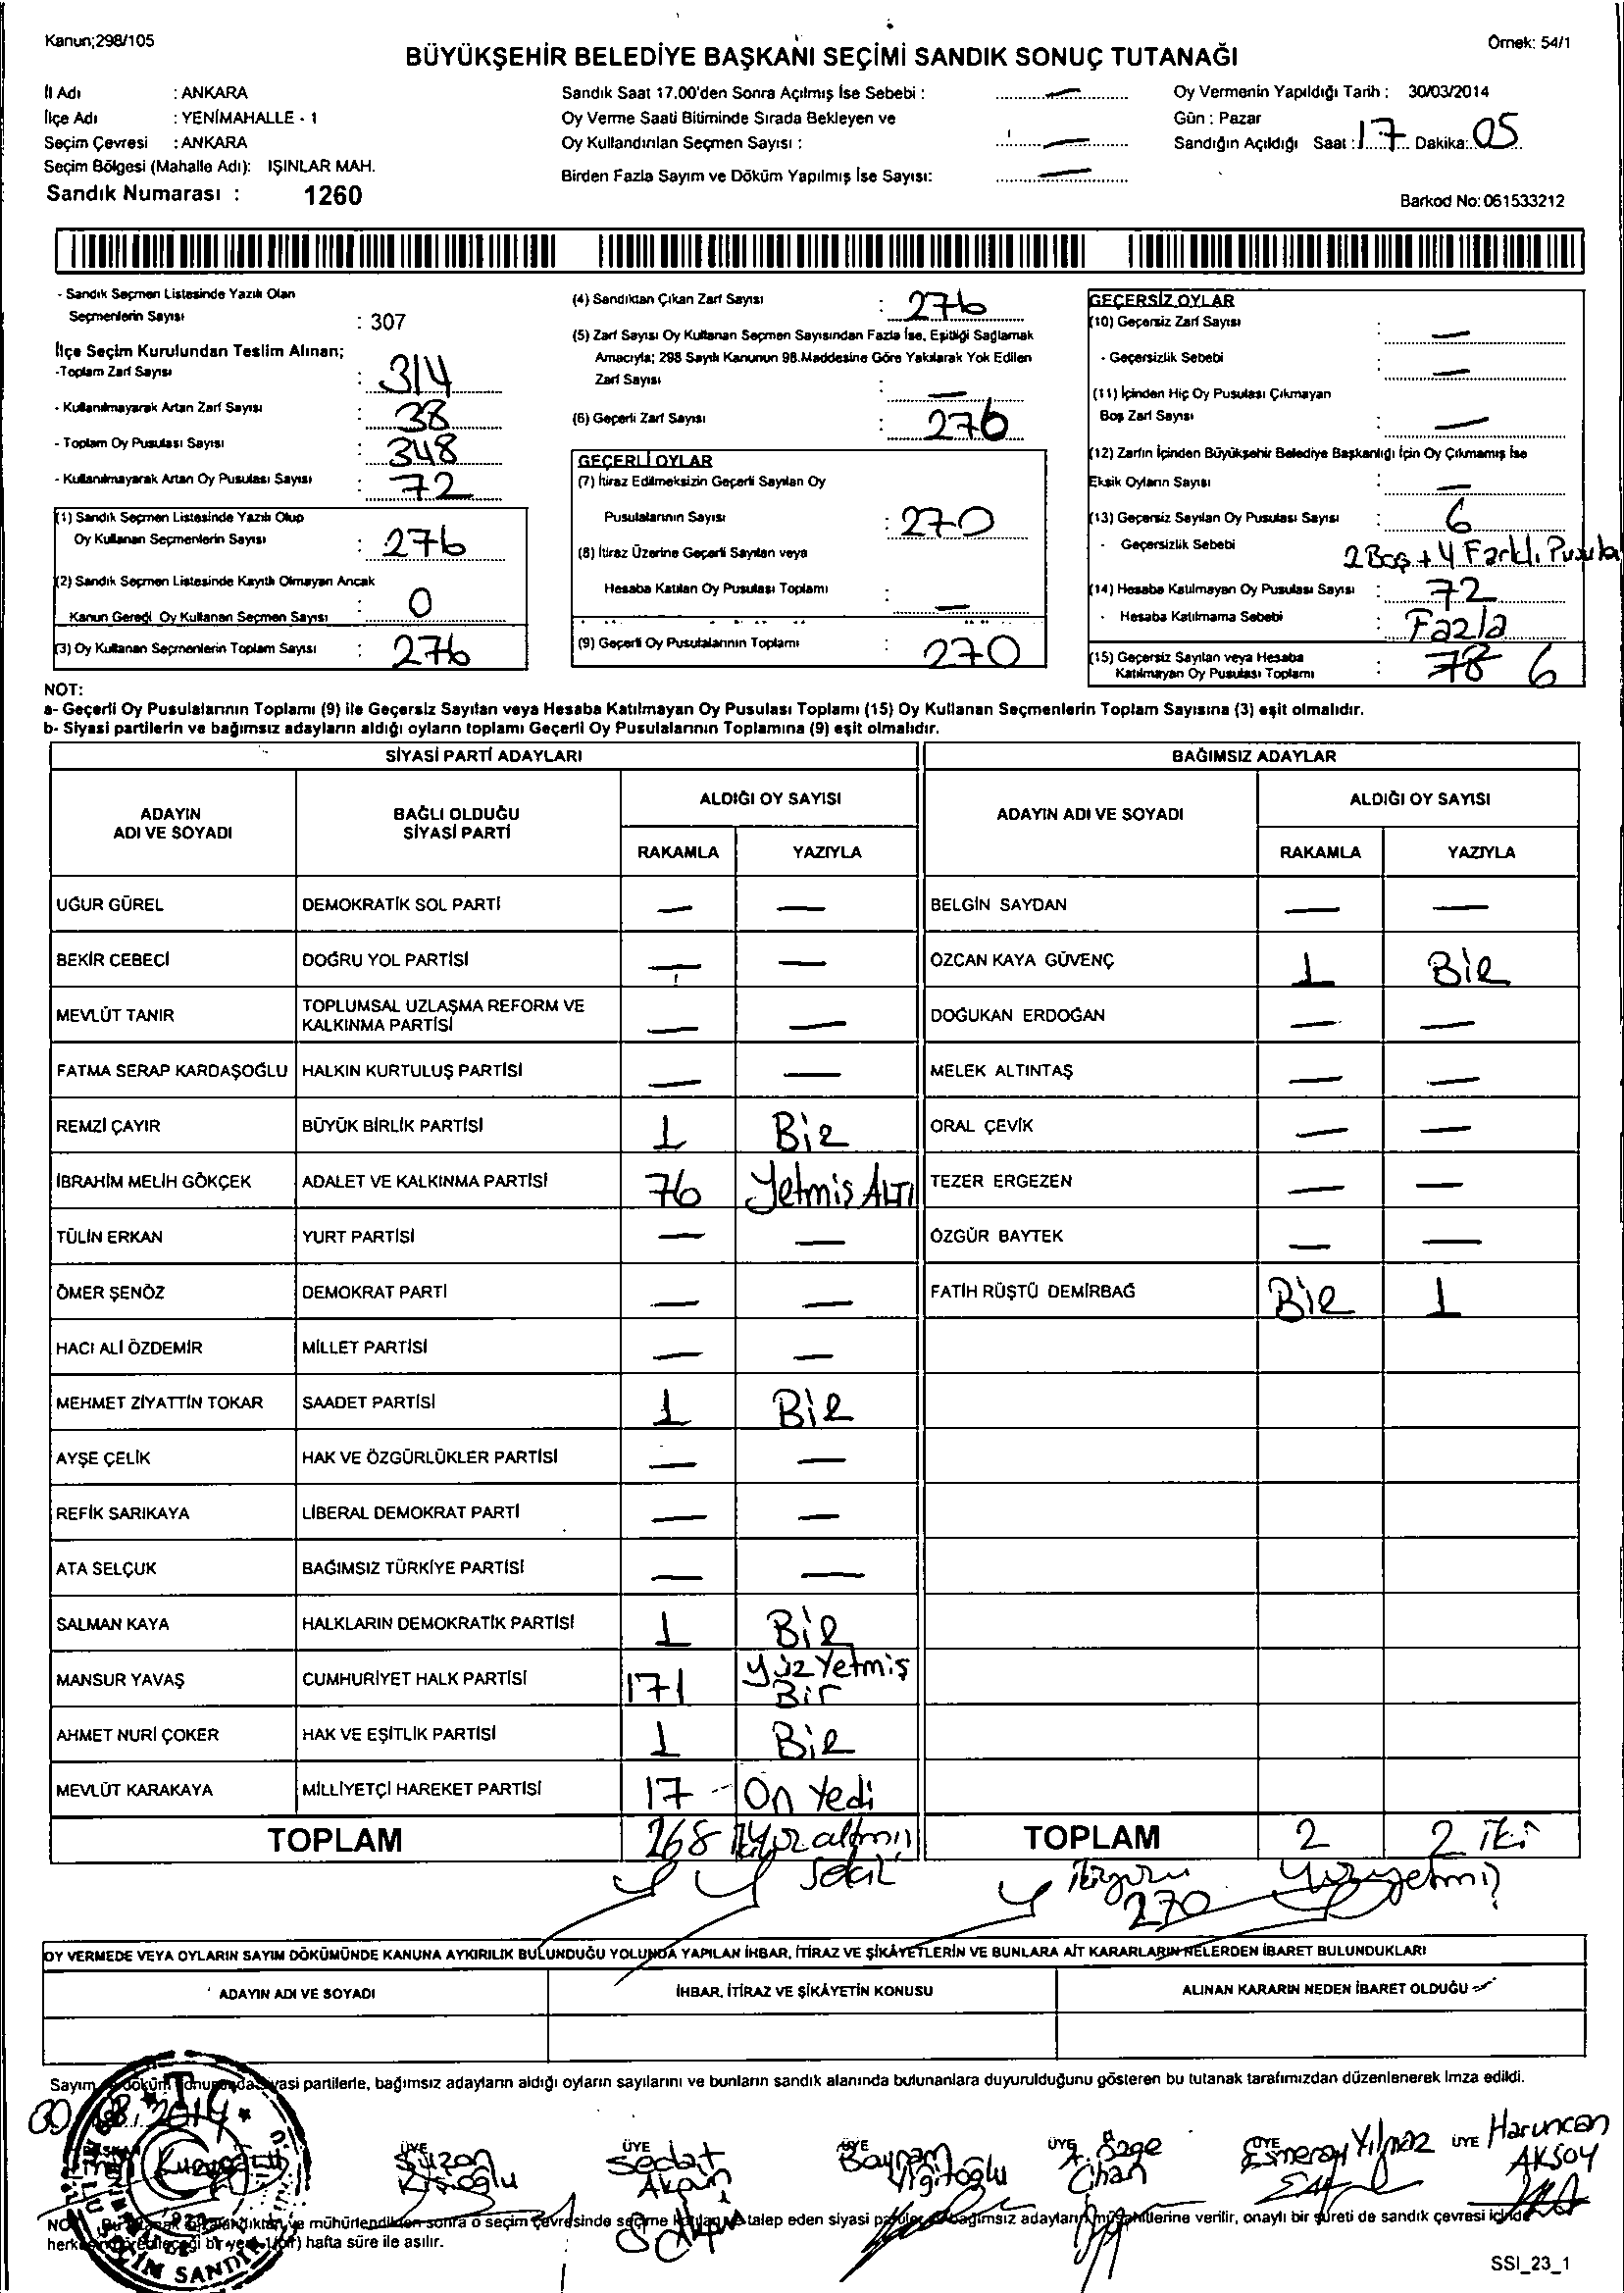 Kanun;298/105
Örnek: 54/1
BÜYÜKŞEHİR BELEDİYE BAŞKANI SEÇİMİ SANDIK SONUÇ TUTANAĞI
İl Adı : ANKARA
İlçe Adı : YENİMAHALLE - 1
Seçim Çevresi : ANKARA
Seçim Bölgesi (Mahalle Adı): IŞINLAR MAH.
Sandık Numarası : 1260
Sandık Saat 17.00'den Sonra Açılmış İse Sebebi : —
Oy Verme Saati Bitiminde Sırada Bekleyen ve
Oy Kullandırılan Seçmen Sayısı : —
Birden Fazla Sayım ve Döküm Yapılmış İse Sayısı: —
Oy Vermenin Yapıldığı Tarih : 30/03/2014
Gün : Pazar
Sandığın Açıldığı Saat : 17 Dakika: 05
Barkod No: 061533212
- Sandık Seçmen Listesinde Yazılı Olan
Seçmenlerin Sayısı : 307
İlçe Seçim Kurulundan Teslim Alınan;
-Toplam Zarf Sayısı : 314
- Kullanılmayarak Artan Zarf Sayısı : 38
- Toplam Oy Pusulası Sayısı : 348
- Kullanılmayarak Artan Oy Pusulası Sayısı : 72
(1) Sandık Seçmen Listesinde Yazılı Olup
Oy Kullanan Seçmenlerin Sayısı : 276
(2) Sandık Seçmen Listesinde Kayıtlı Olmayan Ancak
Kanun Gereği Oy Kullanan Seçmen Sayısı : 0
(3) Oy Kullanan Seçmenlerin Toplam Sayısı : 276
(4) Sandıktan Çıkan Zarf Sayısı : 276
(5) Zarf Sayısı Oy Kullanan Seçmen Sayısından Fazla İse, Eşitliği Sağlamak
Amacıyla; 298 Sayılı Kanunun 98.Maddesine Göre Yakılarak Yok Edilen
Zarf Sayısı : —
(6) Geçerli Zarf Sayısı : 276
GEÇERLİ OYLAR
(7) İtiraz Edilmeksizin Geçerli Sayılan Oy
Pusulalarının Sayısı : 270
(8) İtiraz Üzerine Geçerli Sayılan veya
Hesaba Katılan Oy Pusulası Toplamı : —
(9) Geçerli Oy Pusulalarının Toplamı : 270
GEÇERSİZ OYLAR
(10) Geçersiz Zarf Sayısı : —
- Geçersizlik Sebebi : —
(11) İçinden Hiç Oy Pusulası Çıkmayan
Boş Zarf Sayısı : —
(12) Zarfın İçinden Büyükşehir Belediye Başkanlığı İçin Oy Çıkmamış İse
Eksik Oyların Sayısı : —
(13) Geçersiz Sayılan Oy Pusulası Sayısı : 6
- Geçersizlik Sebebi 2 Boş + 4 Farklı Pusula
(14) Hesaba Katılmayan Oy Pusulası Sayısı : 72
- Hesaba Katılmama Sebebi : Fazla
(15) Geçersiz Sayılan veya Hesaba
Katılmayan Oy Pusulası Toplamı : 78 6
NOT:
a- Geçerli Oy Pusulalarının Toplamı (9) ile Geçersiz Sayılan veya Hesaba Katılmayan Oy Pusulası Toplamı (15) Oy Kullanan Seçmenlerin Toplam Sayısına (3) eşit olmalıdır.
b- Siyasi partilerin ve bağımsız adayların aldığı oyların toplamı Geçerli Oy Pusulalarının Toplamına (9) eşit olmalıdır.
SİYASİ PARTİ ADAYLARI
ADAYIN ADI VE SOYADI
BAĞLI OLDUĞU SİYASİ PARTİ
ALDIĞI OY SAYISI
RAKAMLA YAZIYLA
UĞUR GÜREL DEMOKRATİK SOL PARTİ — —
BEKİR CEBECİ DOĞRU YOL PARTİSİ — —
MEVLÜT TANIR TOPLUMSAL UZLAŞMA REFORM VE KALKINMA PARTİSİ — —
FATMA SERAP KARDAŞOĞLU HALKIN KURTULUŞ PARTİSİ — —
REMZİ ÇAYIR BÜYÜK BİRLİK PARTİSİ 1 Bir
İBRAHİM MELİH GÖKÇEK ADALET VE KALKINMA PARTİSİ 76 Yetmiş ALTI
TÜLİN ERKAN YURT PARTİSİ — —
ÖMER ŞENÖZ DEMOKRAT PARTİ — —
HACI ALİ ÖZDEMİR MİLLET PARTİSİ — —
MEHMET ZİYATTİN TOKAR SAADET PARTİSİ 1 Bir
AYŞE ÇELİK HAK VE ÖZGÜRLÜKLER PARTİSİ — —
REFİK SARIKAYA LİBERAL DEMOKRAT PARTİ — —
ATA SELÇUK BAĞIMSIZ TÜRKİYE PARTİSİ — —
SALMAN KAYA HALKLARIN DEMOKRATİK PARTİSİ 1 Bir
MANSUR YAVAŞ CUMHURİYET HALK PARTİSİ 171 Yüz Yetmiş Bir
AHMET NURİ ÇOKER HAK VE EŞİTLİK PARTİSİ 1 Bir
MEVLÜT KARAKAYA MİLLİYETÇİ HAREKET PARTİSİ 17 On Yedi
TOPLAM 268 ikiyüz altmış sekiz
BAĞIMSIZ ADAYLAR
ADAYIN ADI VE SOYADI
ALDIĞI OY SAYISI
RAKAMLA YAZIYLA
BELGİN SAYDAN — —
ÖZCAN KAYA GÜVENÇ 1 Bir
DOĞUKAN ERDOĞAN — —
MELEK ALTINTAŞ — —
ORAL ÇEVİK — —
TEZER ERGEZEN — —
ÖZGÜR BAYTEK — —
FATİH RÜŞTÜ DEMİRBAĞ Bir 1
TOPLAM 2 2 iki
270
OY VERMEDE VEYA OYLARIN SAYIM DÖKÜMÜNDE KANUNA AYKIRILIK BULUNDUĞU YOLUNDA YAPILAN İHBAR, İTİRAZ VE ŞİKÂYETLERİN VE BUNLARA AİT KARARLARIN NELERDEN İBARET BULUNDUKLARI
ADAYIN ADI VE SOYADI
İHBAR, İTİRAZ VE ŞİKÂYETİN KONUSU
ALINAN KARARIN NEDEN İBARET OLDUĞU
Sayım siyasi partilerle, bağımsız adayların aldığı oyların sayılarını ve bunların sandık alanında bulunanlara duyurulduğunu gösteren bu tutanak tarafımızdan düzenlenerek imza edildi.
BAŞKAN
ÜYE Suzan
ÜYE Sedat Akpın
ÜYE Bayram Yiğitoğlu
ÜYE A. Özge Cihan
ÜYE Esmeray Yılmaz
ÜYE Haruncan AKSOY
mühürlendikten sonra o seçim çevresinde seçime katılan ve talep eden siyasi partiler bağımsız adayların müşahitlerine verilir, onaylı bir sureti de sandık çevresi içinde
hafta süre ile asılır.
SSI_23_1